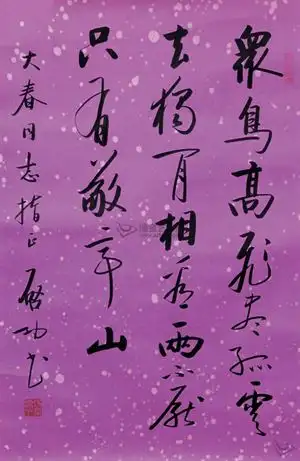 衆鳥高飛盡孤雲
去獨閒相看兩不厭
只有敬亭山
大春同志指正 啓功書